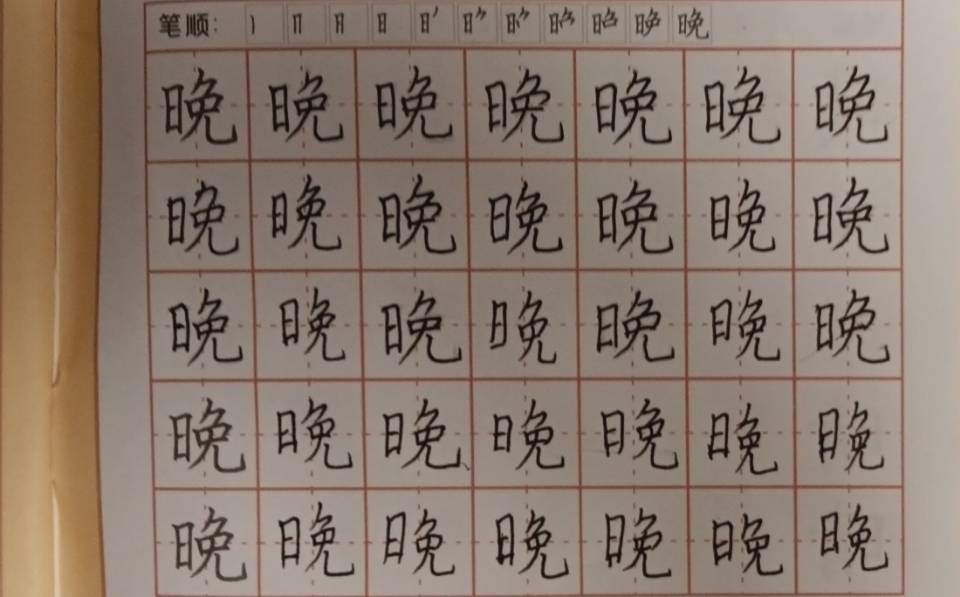 笔顺：丨 冂 日 日 日' 晚
晚 晚 晚 晚 晚 晚 晚
晚 晚 晚 晚 晚 晚 晚
晚 晚 晚 晚 晚 晚 晚
晚 晚 晚 晚 晚 晚 晚
晚 晚 晚 晚 晚 晚 晚